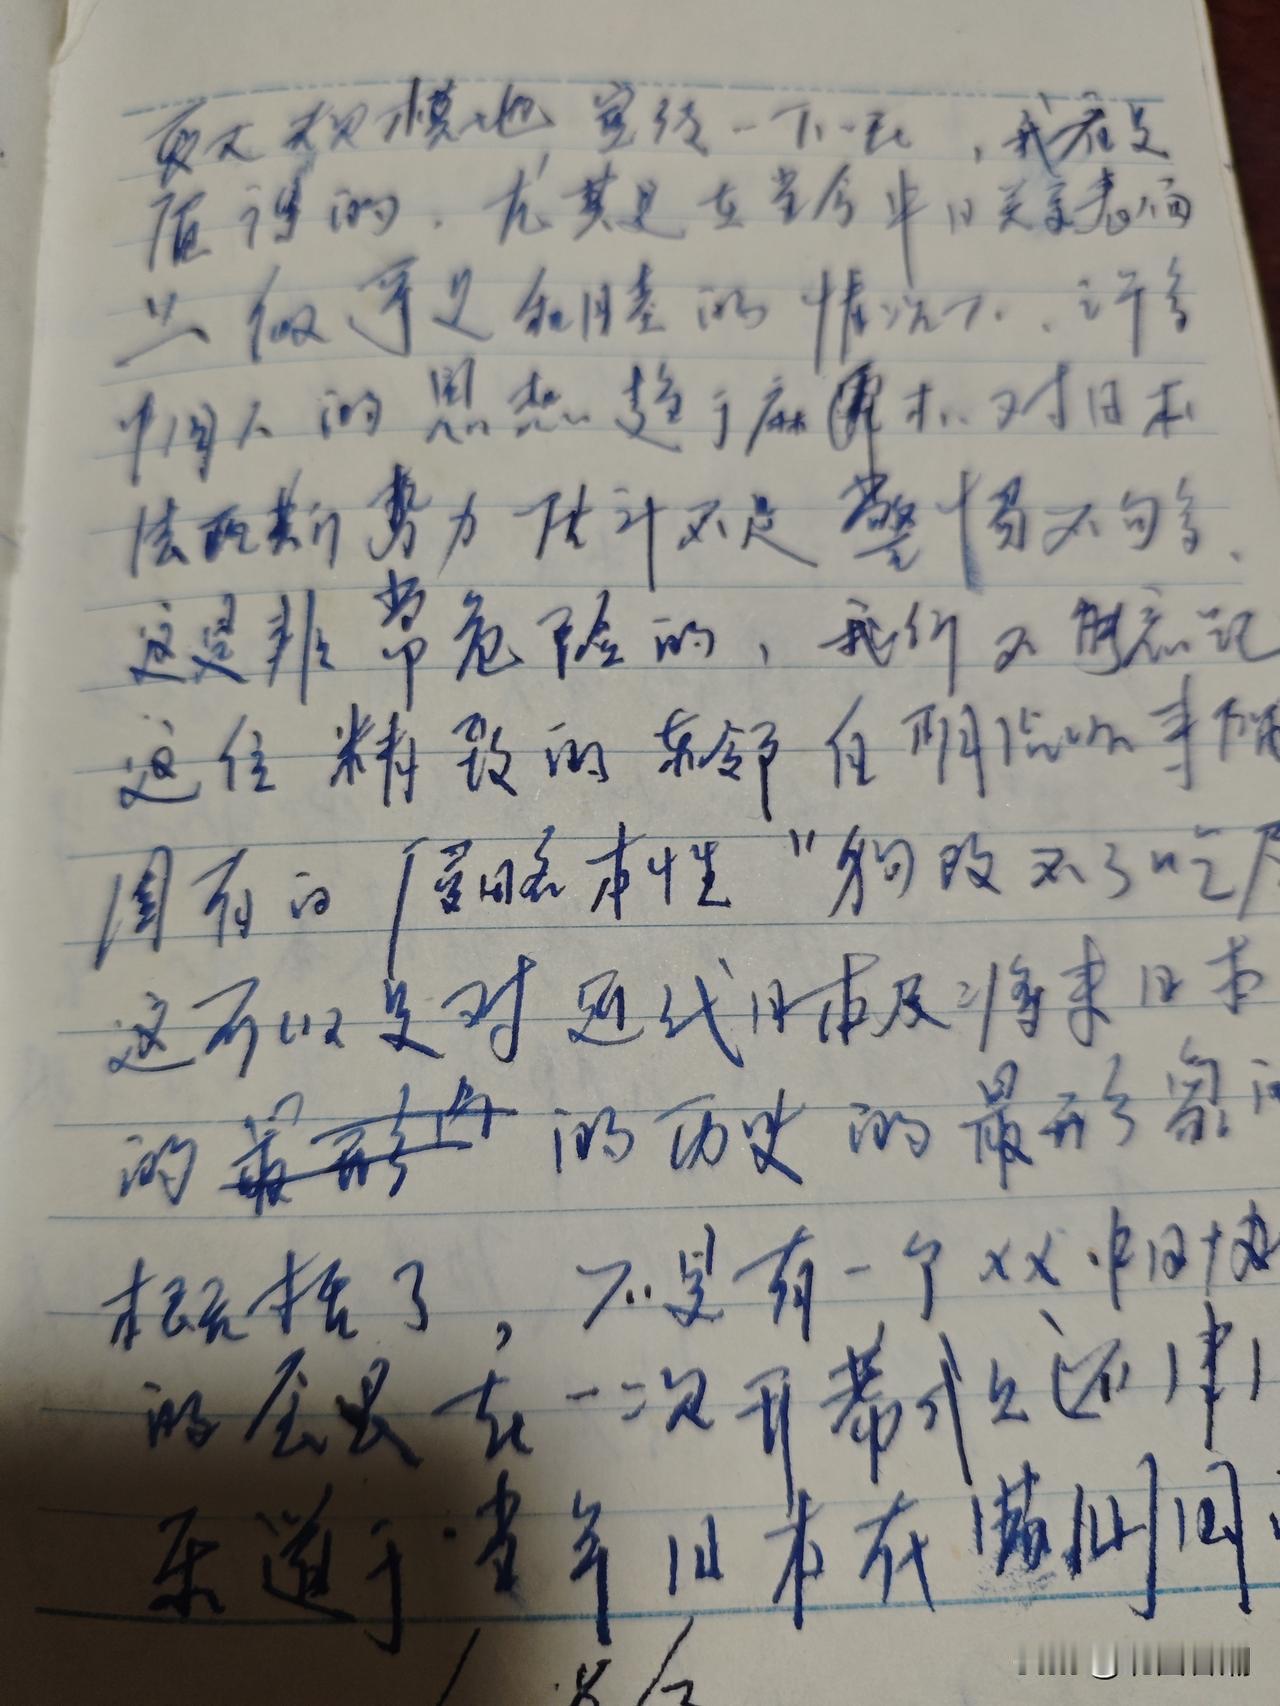 更大规模地宣传一下一死,我看是
值得的.尤其是在当今中日关系表面
上做乎是和睦的情况下.许多
中国人的思想趋于麻痹,对日本
法西斯势力估计不足警惕不句多、
这是非常危险的,我们不能忘记
这位精致的东邻在阴险
固有的侵略本性"狗改不了吃
这可以是对近代日本及将来日本
的的历史的最形象
概括了,不是有一个××中日协
的会员在一次开幕式上还津
乐道于当年日本在满州国